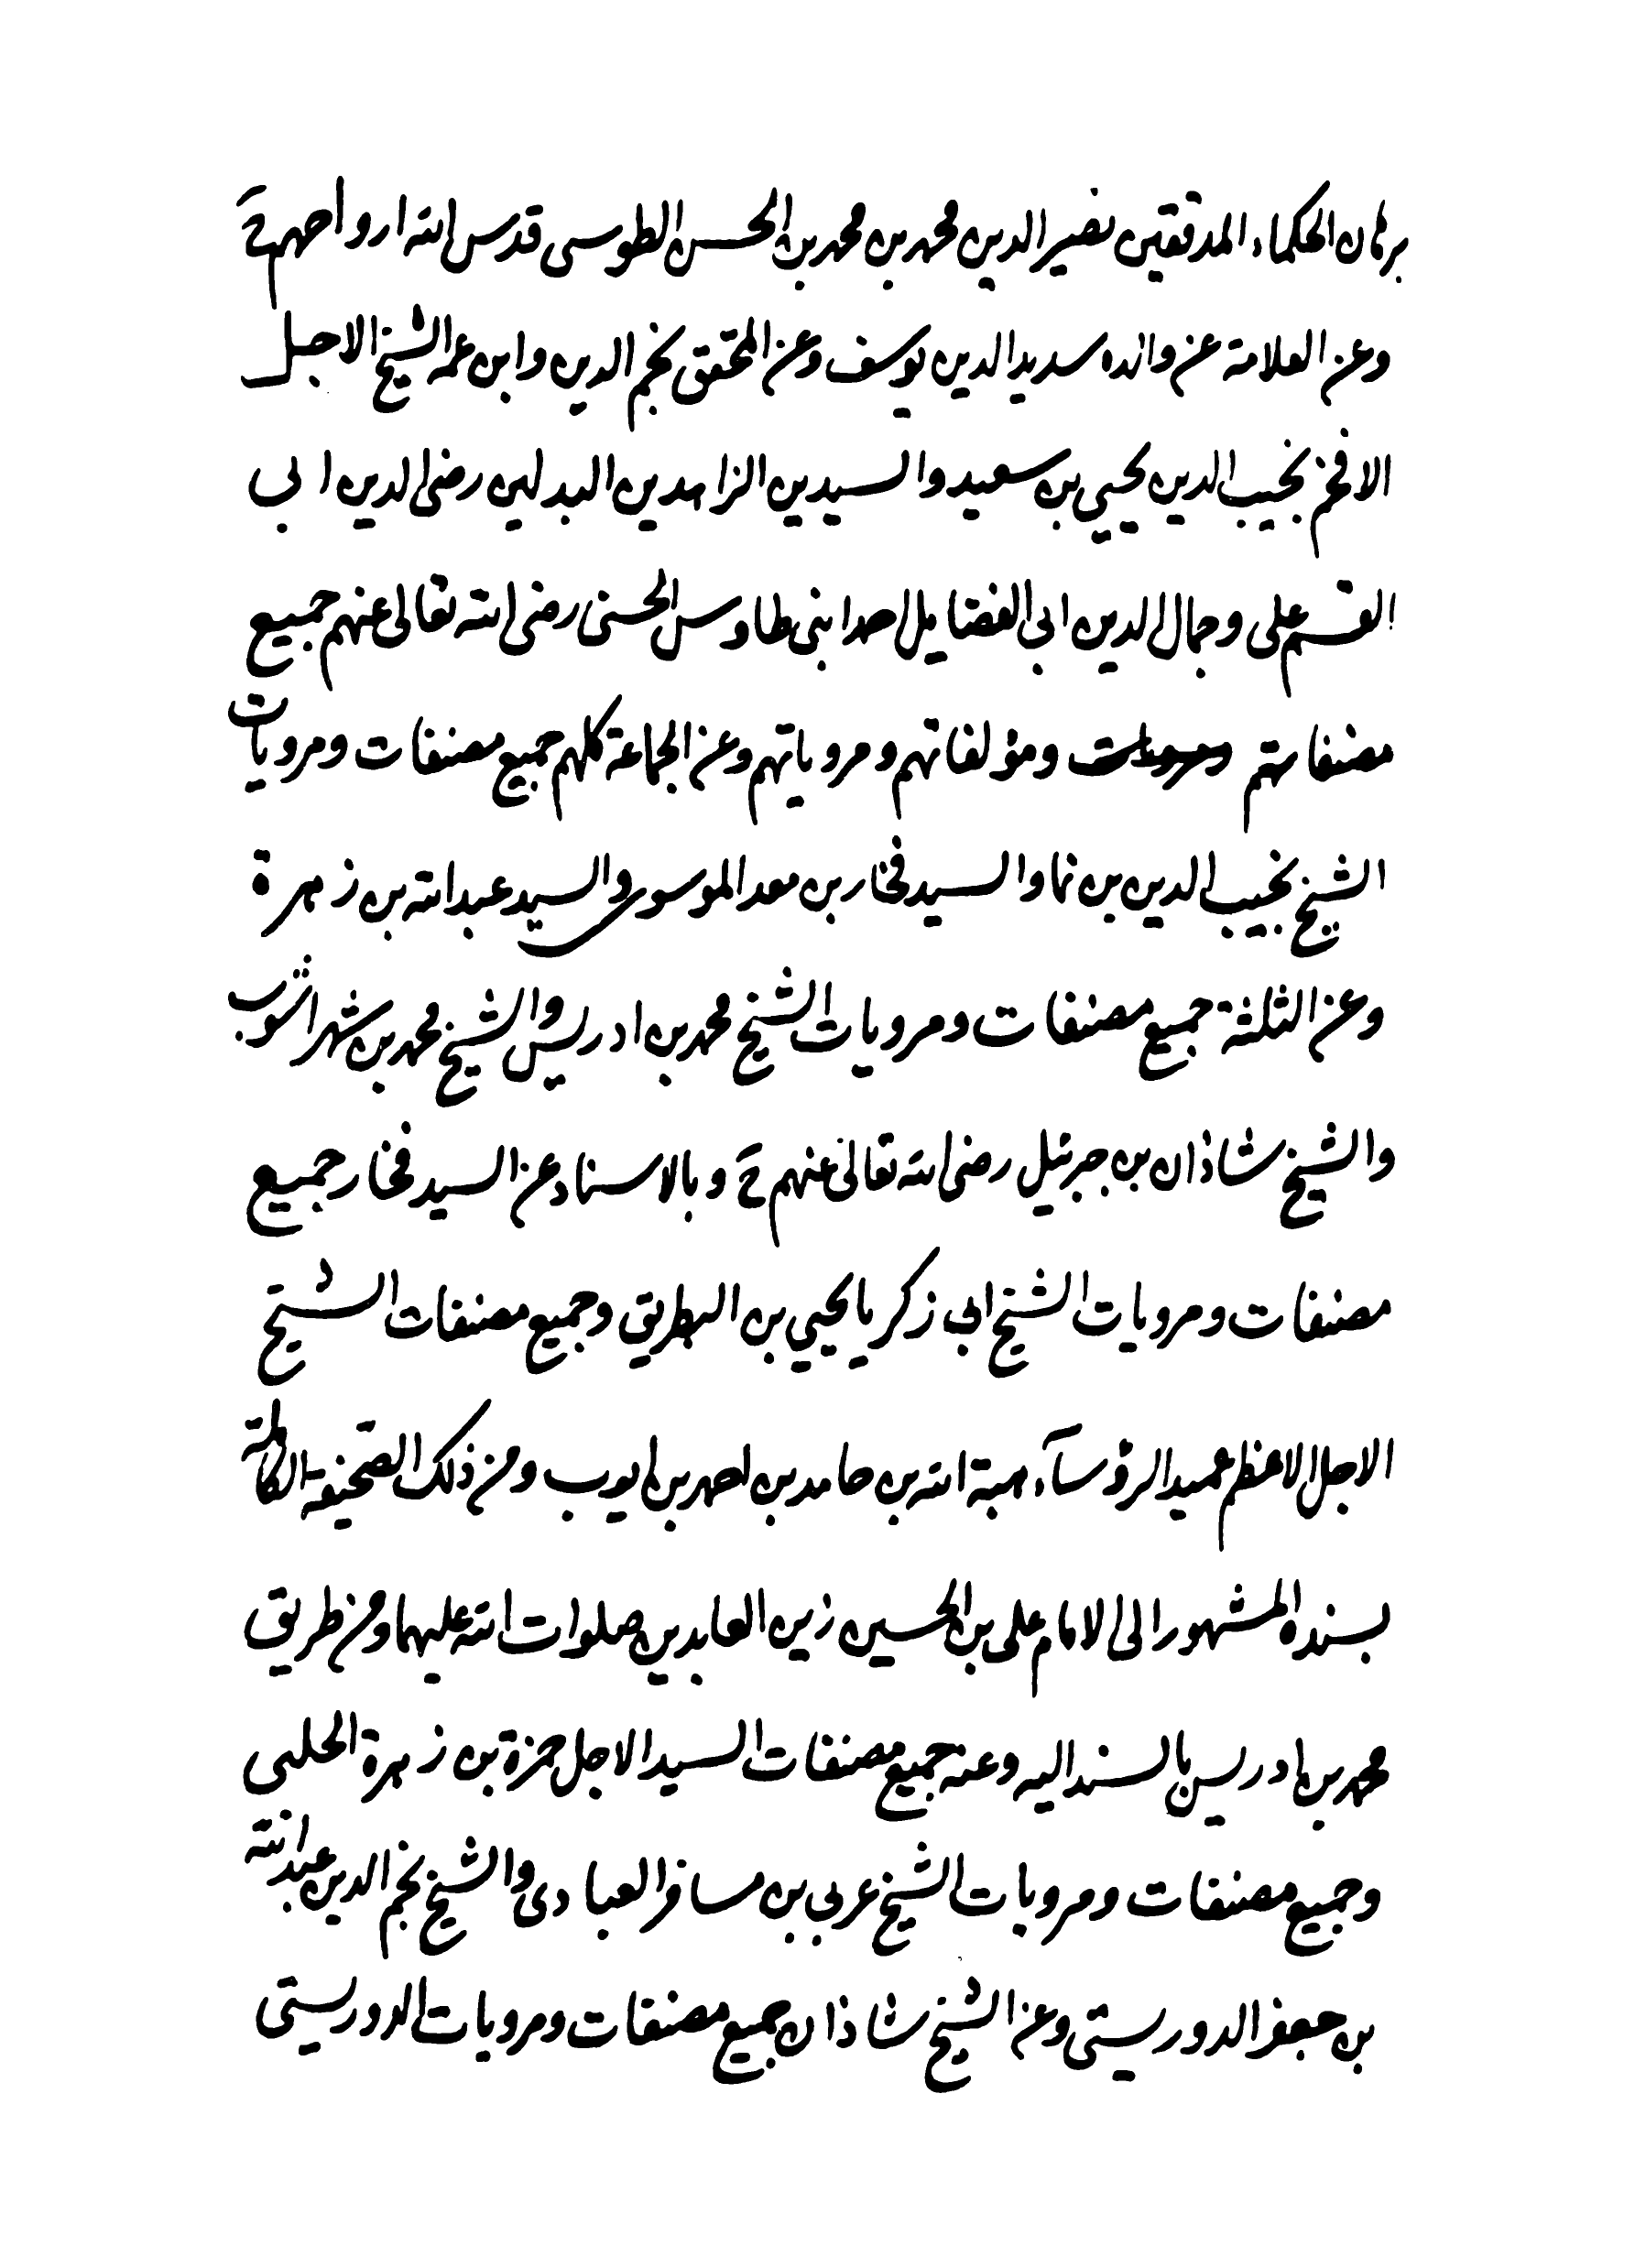 برهان الحكماء المدققين نصير الدين محمد بن محمد بن الحسن الطوسى قدس الله ارواحهم ح
وعن العلامة عن والده سديد الدين يوسف وعن المحقق نجم الدين وابن عمه الشيخ الاجل
الافخر نجيب الدين يحيى بن سعيد والسيدين الزاهدين البدلين رضى الدين ابى
القسم على وجمال الدين ابى الفضايل احمد ابنى طاوس الحسنى رضى الله تعالى عنهم جميع
مصنفاتهم ومؤلفاتهم ومروياتهم وعن الجماعة كلهم جميع مصنفات ومرويات
الشيخ نجيب الدين بن نما والسيد فخار بن معد الموسوى والسيد عبد الله بن زهرة
وعن الثلثة جميع مصنفات ومرويات الشيخ محمد بن ادريس والشيخ محمد بن شهراشوب
والشيخ شاذان بن جبرئيل رضى الله تعالى عنهم ح وبالاسناد عن السيد فخار جميع
مصنفات ومرويات الشيخ ابى زكريا يحيى بن البطريق وجميع مصنفات الشيخ
الاجل الاعظم عميد الرؤسآء هبة الله بن حامد بن احمد بن ايوب ومن ذلك الصحيفة الكاملة
بسنده المشهور الى الامام على بن الحسين زين العابدين صلوات الله عليهما ومن طريق
محمد بن ادريس بالسند اليه وعنه جميع مصنفات السيد الاجل حمزة بن زهرة الحلبى
وجميع مصنفات ومرويات الشيخ عربى بن مسافر العبادى والشيخ نجم الدين عبد الله
بن جعفر الدوريستى وعن الشيخ شاذان جميع مصنفات ومرويات الدوريستى